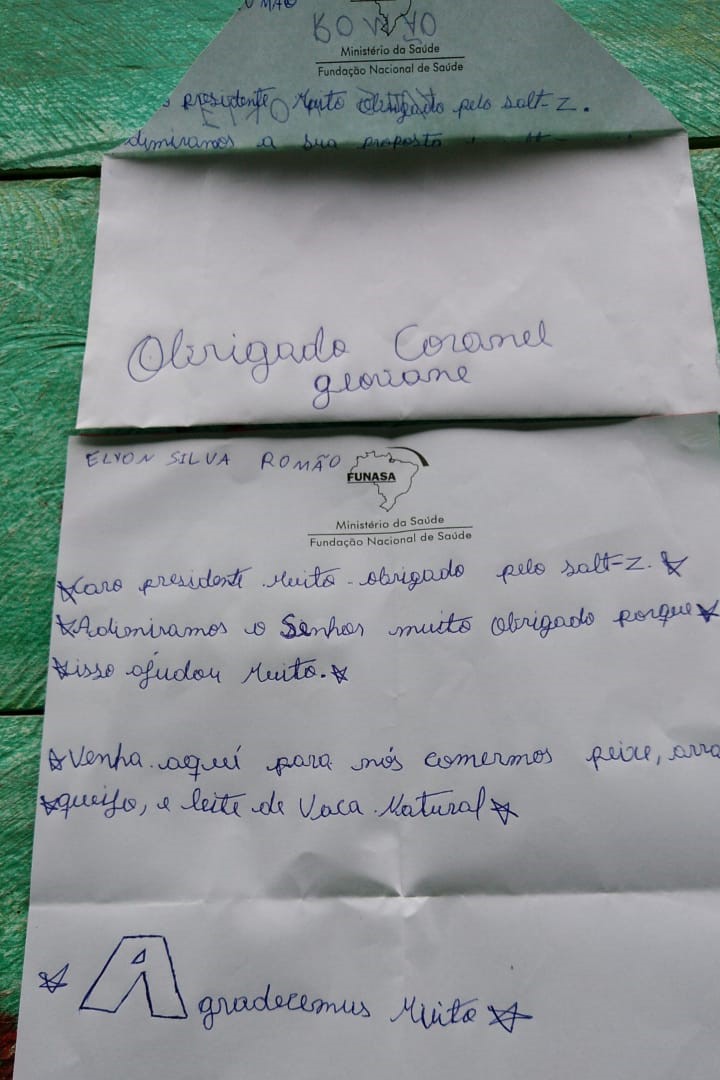 ROMÃO
Ministério da Saúde
Fundação Nacional de Saúde
presidente Muito obrigado pelo salt-z.
dimiramos a sua proposta
Obrigado Coronel
geoviane
ELYON SILVA ROMÃO
FUNASA
Ministério da Saúde
Fundação Nacional de Saúde
Caro presidente Muito obrigado pelo salt-z.
Adimiramos o Senhor muito obrigado porque
isso ajudou Muito.
Venha aquí para nós comermos peixe, arro
queijo, e leite de Vaca Natural
Agradecemus Muito